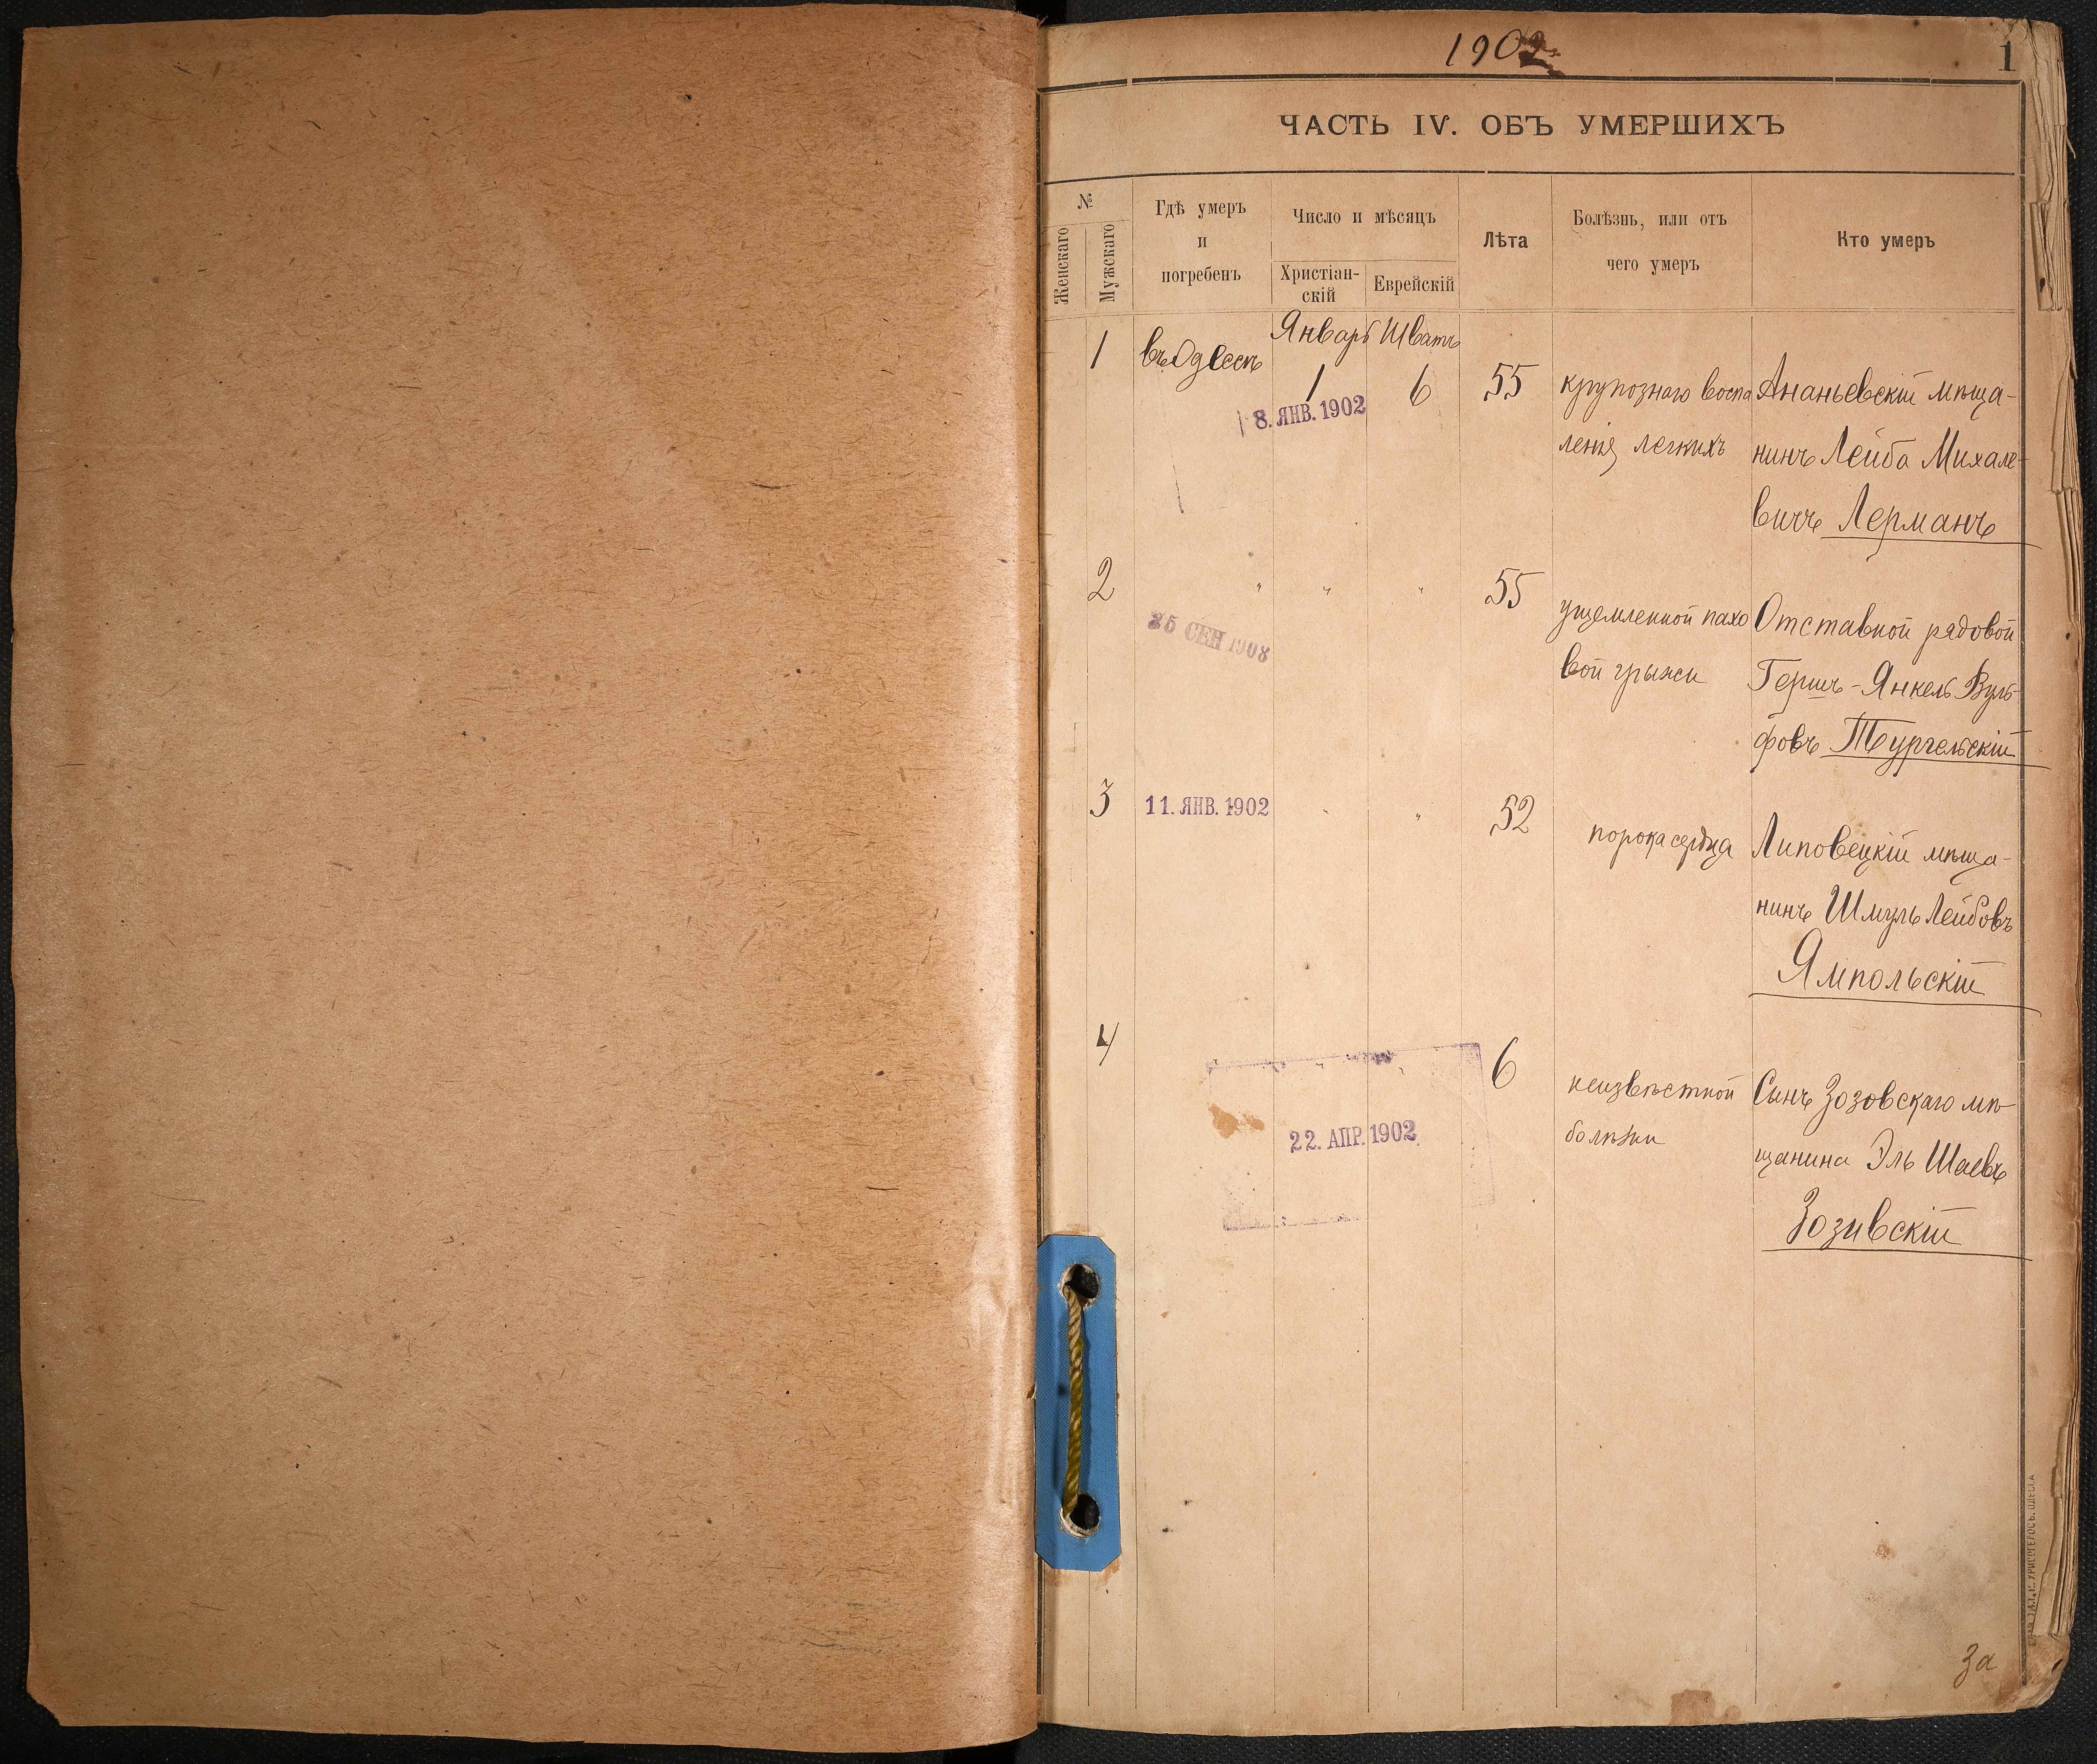 1902
1
ЧАСТЬ IV. ОБЪ УМЕРШИХЪ
№
Женскаго
Мужскаго
Гдѣ умеръ
и
погребенъ
Число и мѣсяцъ
Христіан-
скій
Еврейскій
Лѣта
Болѣзнь, или отъ
чего умеръ
Кто умеръ
1
въ Одессѣ
Январь
1
Шватъ
6
8. ЯНВ. 1902
55
крупознаго воспа
ленія легкихъ
Ананьевскій мѣща-
нинъ Лейба Михале-
вичъ Лерманъ
2
" " "
25 СЕН 1908
55
ущемленной пахо
вой грыжи
Отставной рядовой
Гершъ-Янкель Вуль
фовъ Тургельскій
3
11. ЯНВ. 1902
" "
52
порока сердца
Липовецкій мѣща-
нинъ Шмуль Лейбовъ
Ямпольскій
4
" "
22. АПР. 1902
6
неизвѣстной
болѣзни
Сынъ Зозовскаго мѣ-
щанина Эль Шаевъ
Зозивскій
За